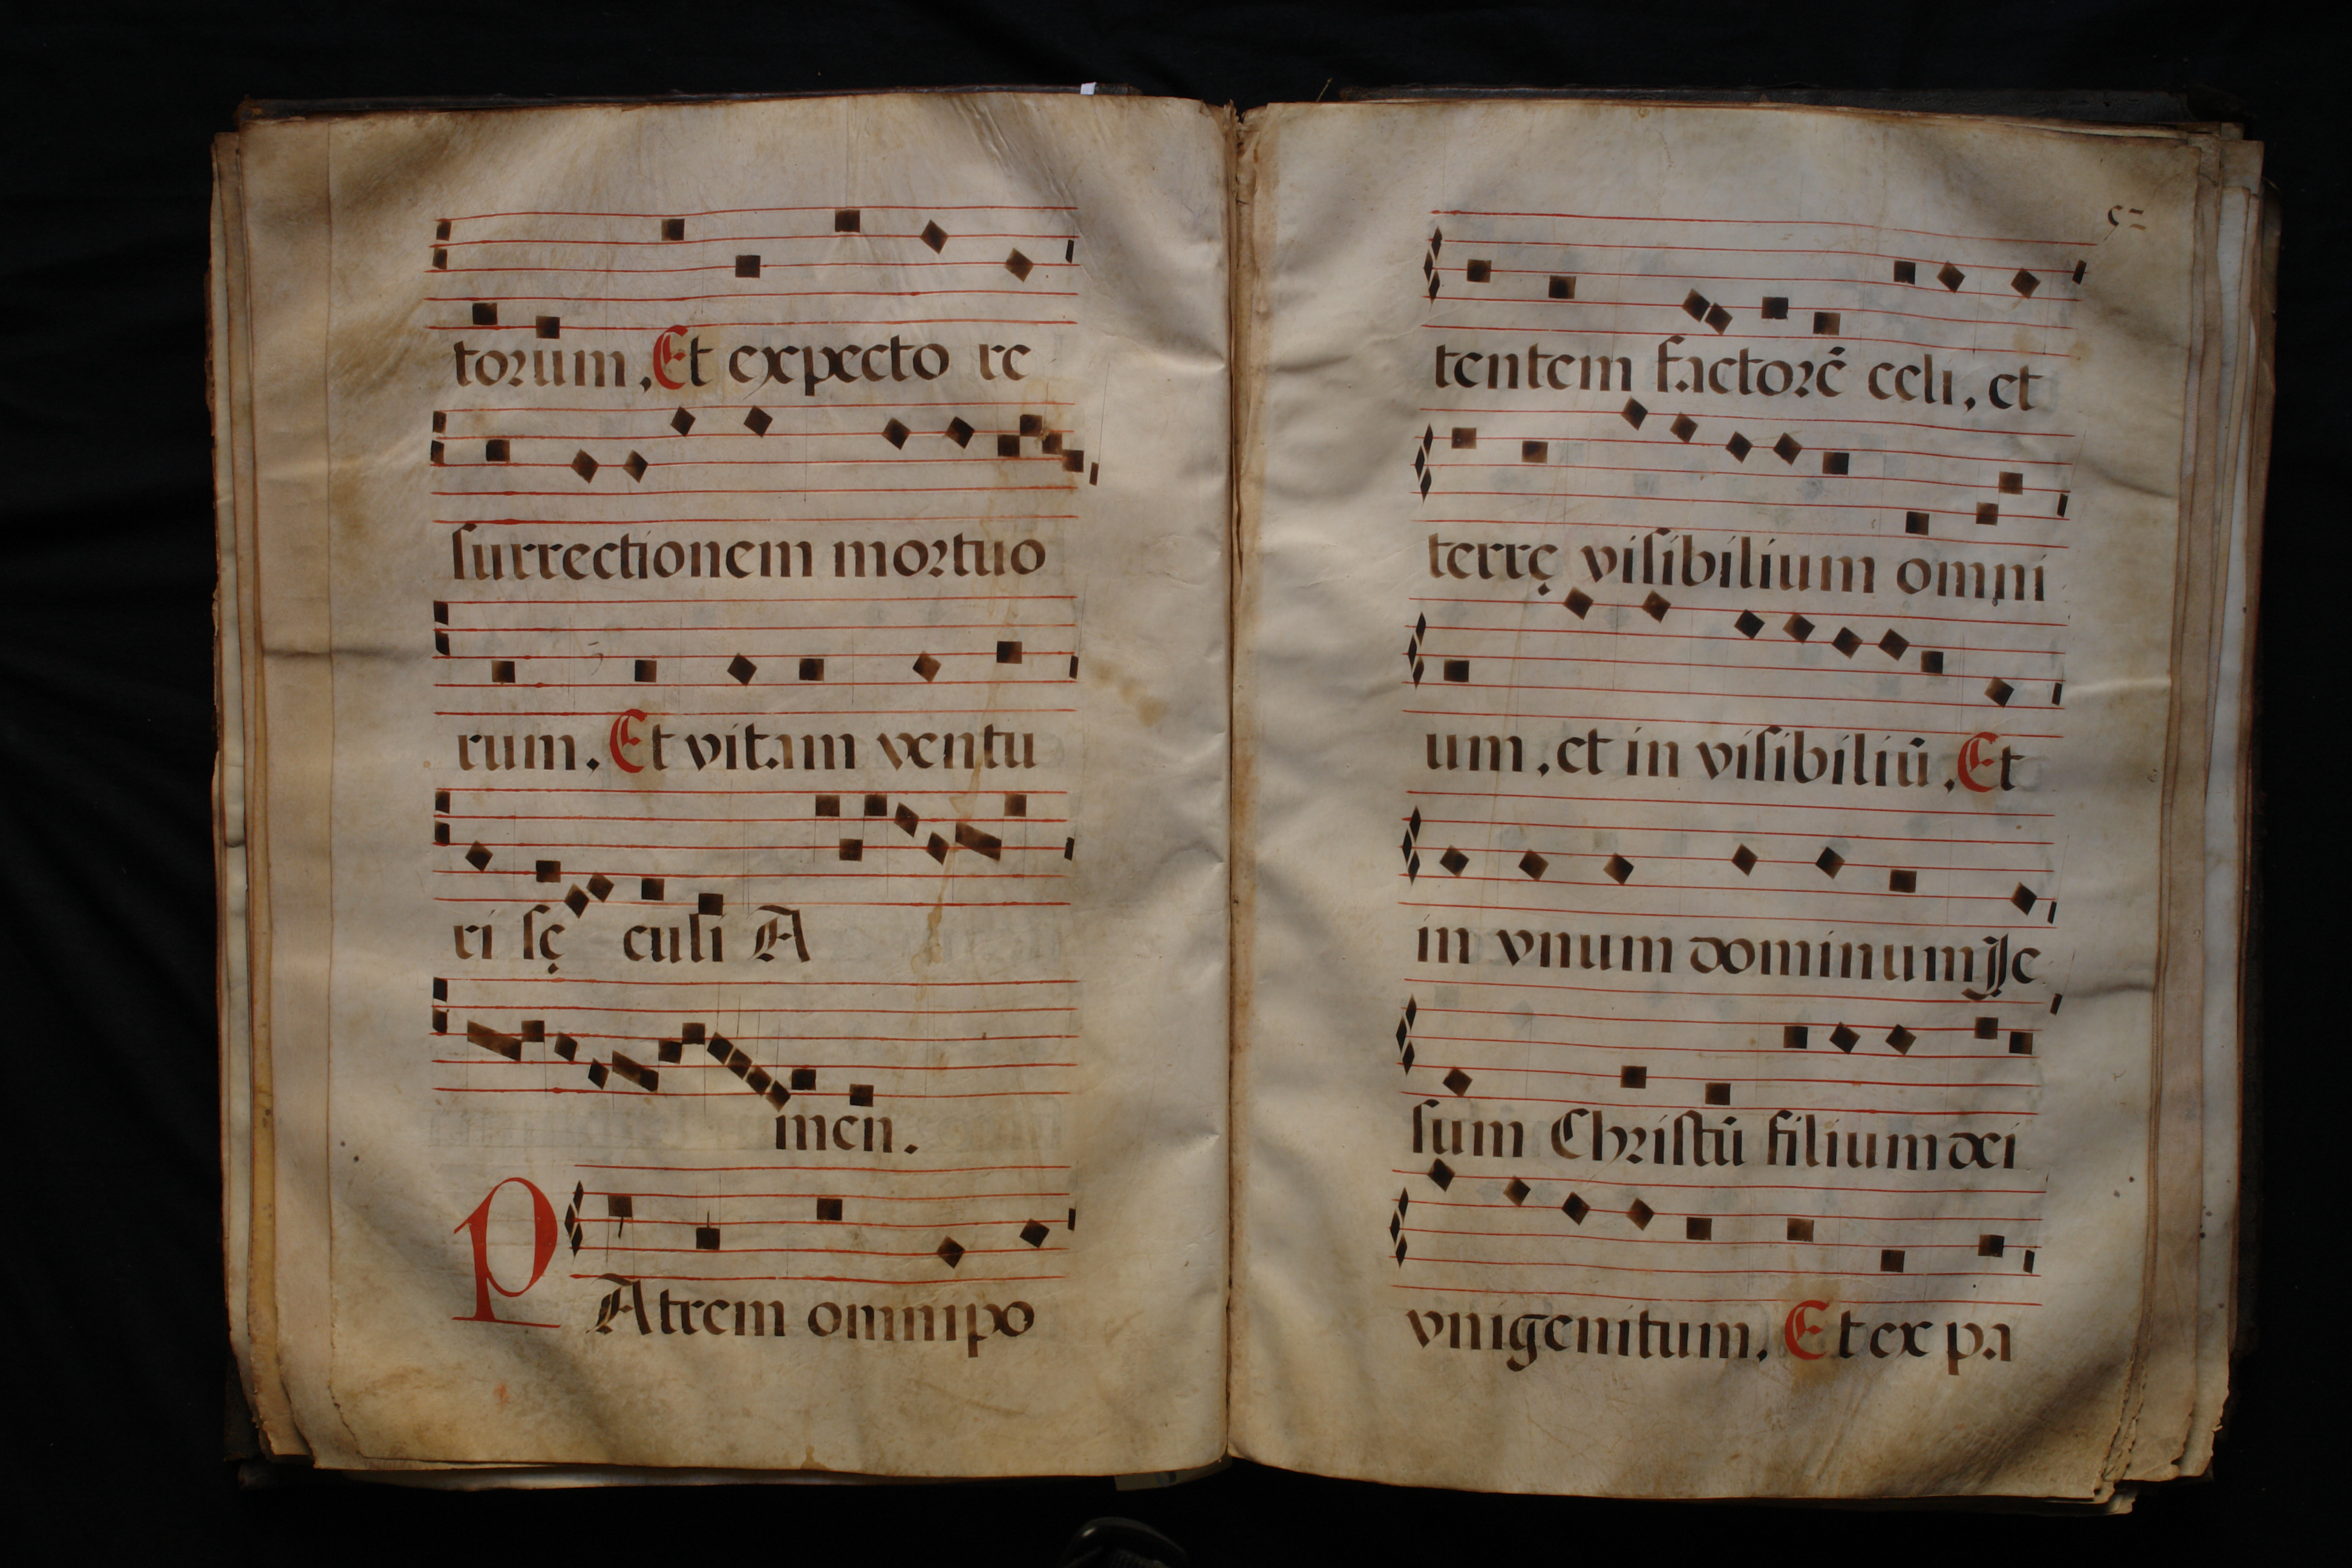 torum. Et expecto re
ſurrectionem mortuo
rum. Et vitam ventu
ri ſę culi A
men.
PAtrem omnipo
tentem factorē celi, et
terrę viſibilium omni
um, et in viſibiliū. Et
in vnum dominum Je
ſum Chriſtū filium dei
vnigenitum. Et ex pa